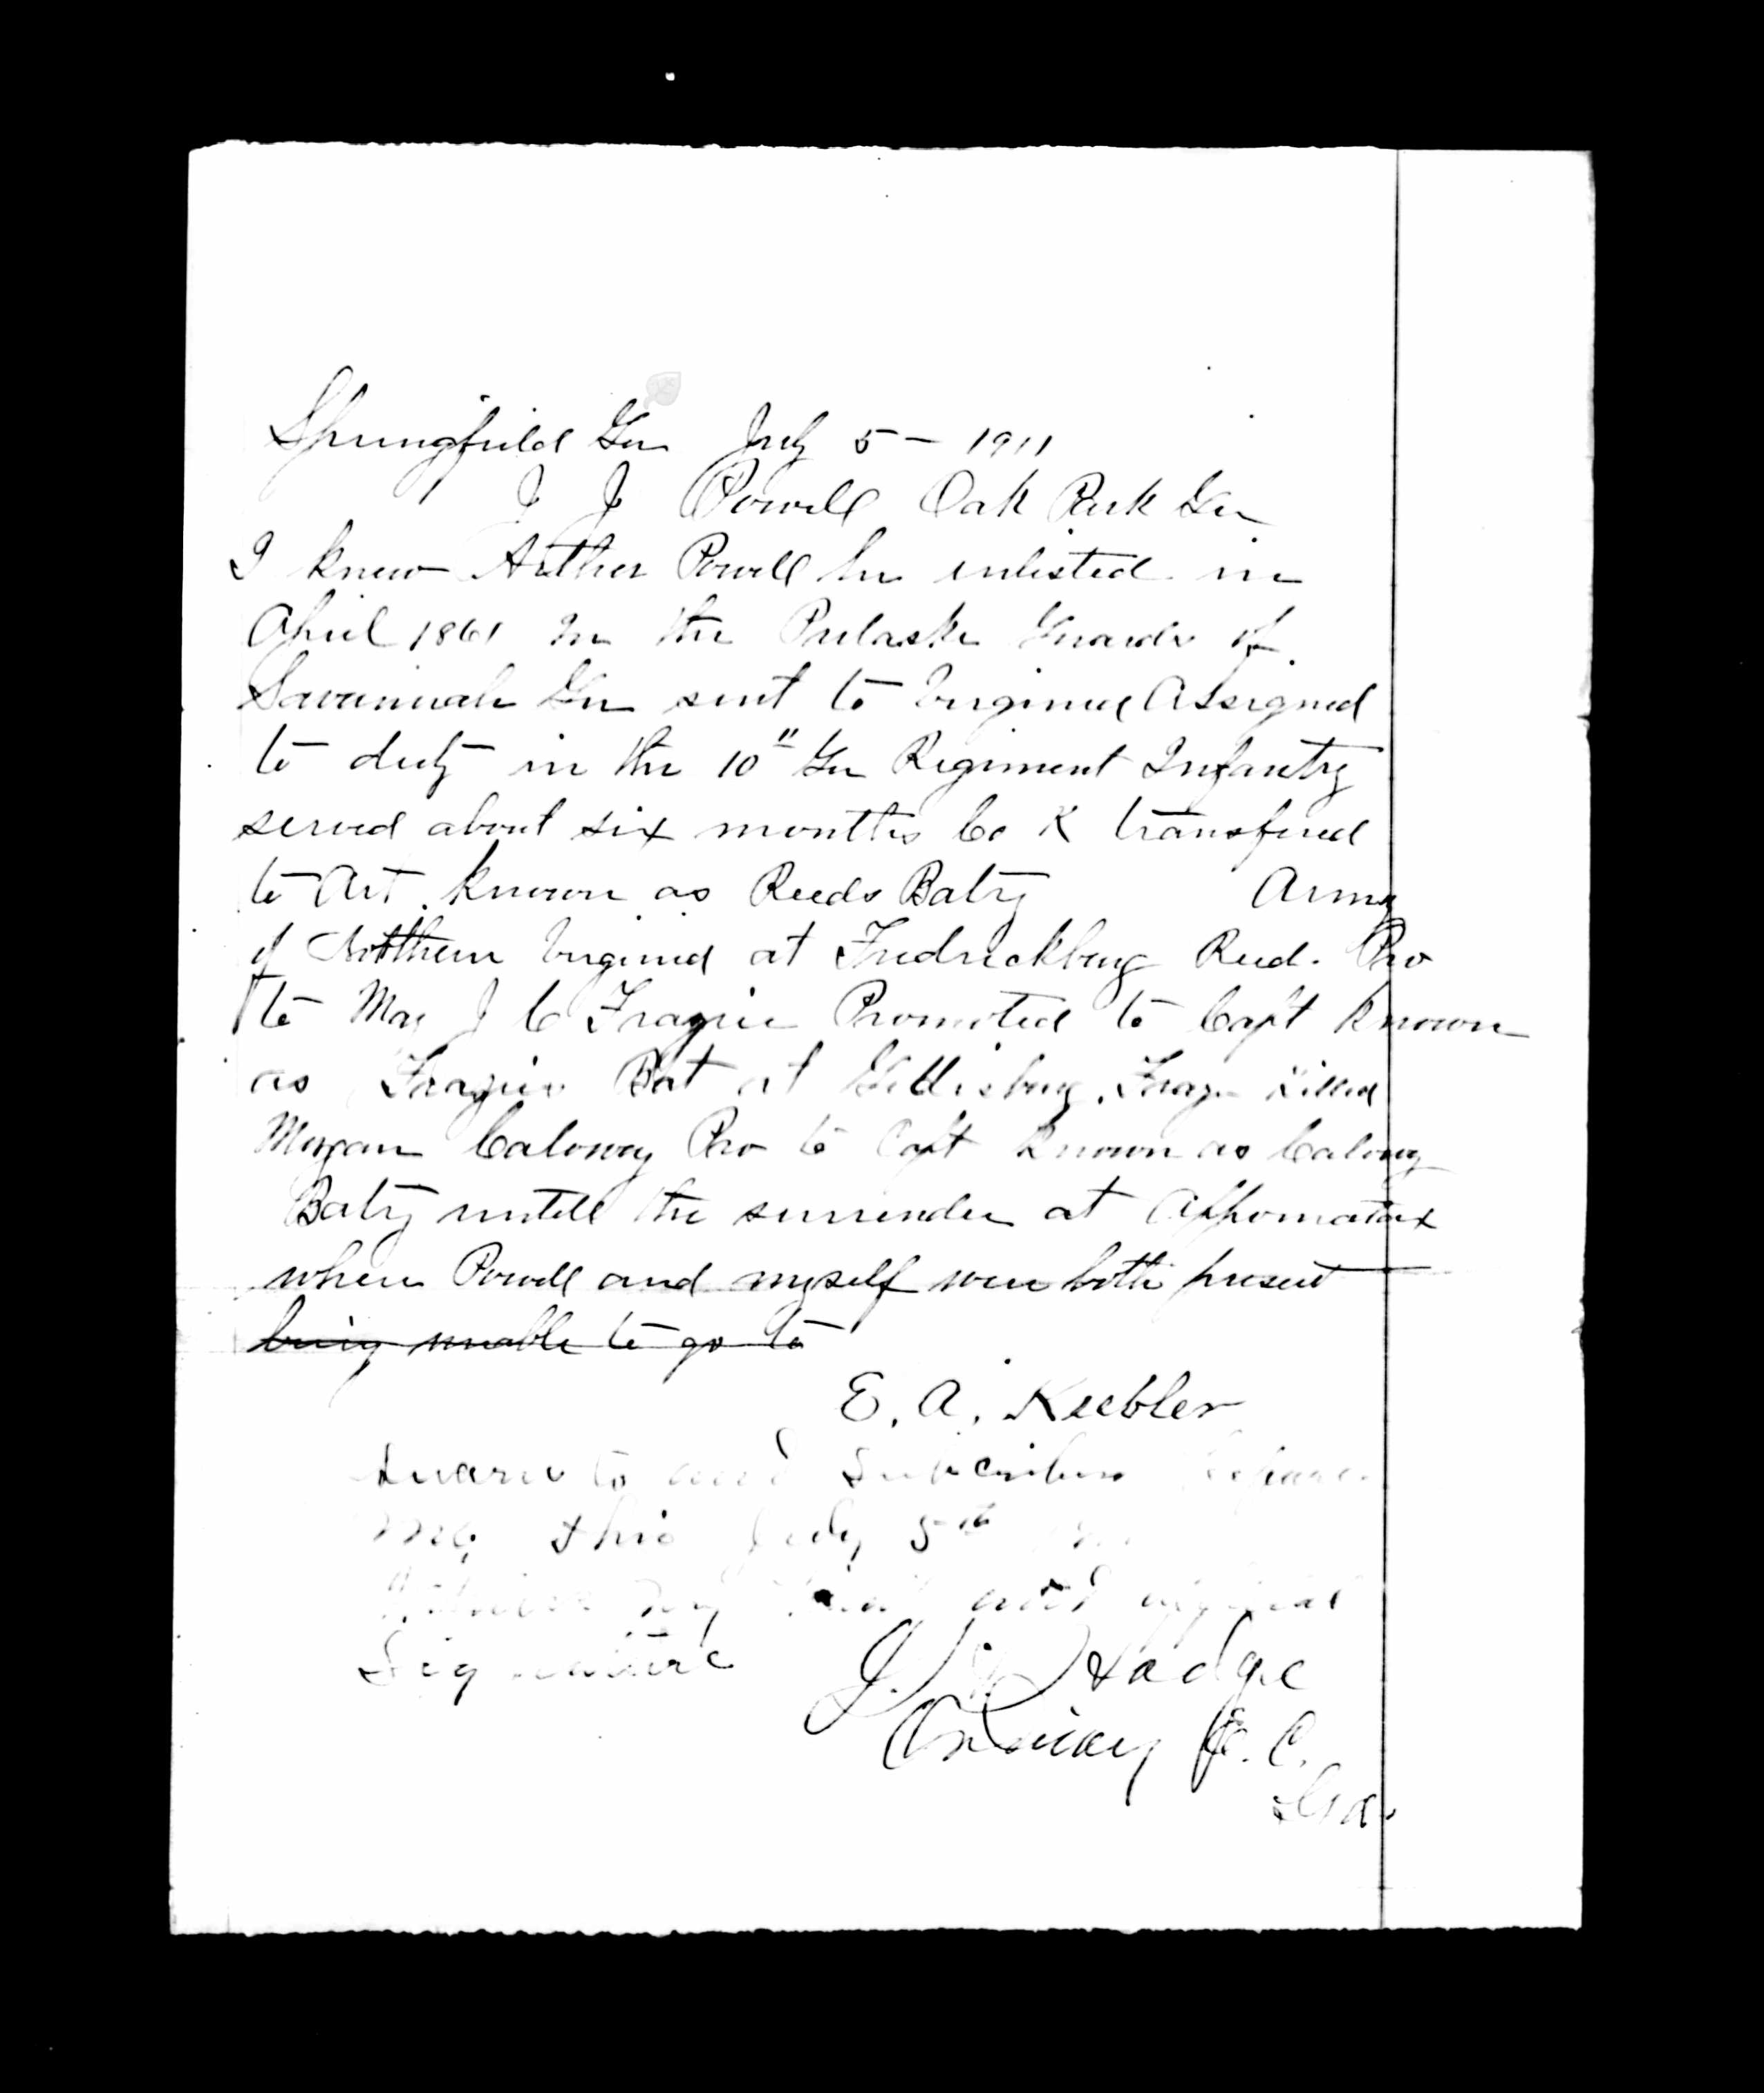 Springfield Ga July 5 - 1911
J J Powell Oak Park Ga
I knew Arther Powell he inlisted in
April 1861 in the Pulaski Guards of
Savannah Ga sent to Virginia Assigned
to duty in the 10" Ga Regiment Infantry
served about six months Co K transfired
to Art. known as Reeds Batry Army
of Northern Virginia at Fredrickburg Reed. Pro
to Maj J C Frazier Promoted to Capt known
as Fraziers Bat at Gettisburg. Frazier Killed
Morgan Caloway Pro to Capt known as Caloway
Batry untill the surrender at Appomatax
where Powell and myself were both present
being unable to go to
E. A. Keebler
Sworn to and Subscribed before
me this July 5th
my and official
Signature J. Hodge
Ordinary E. C.
Ga.